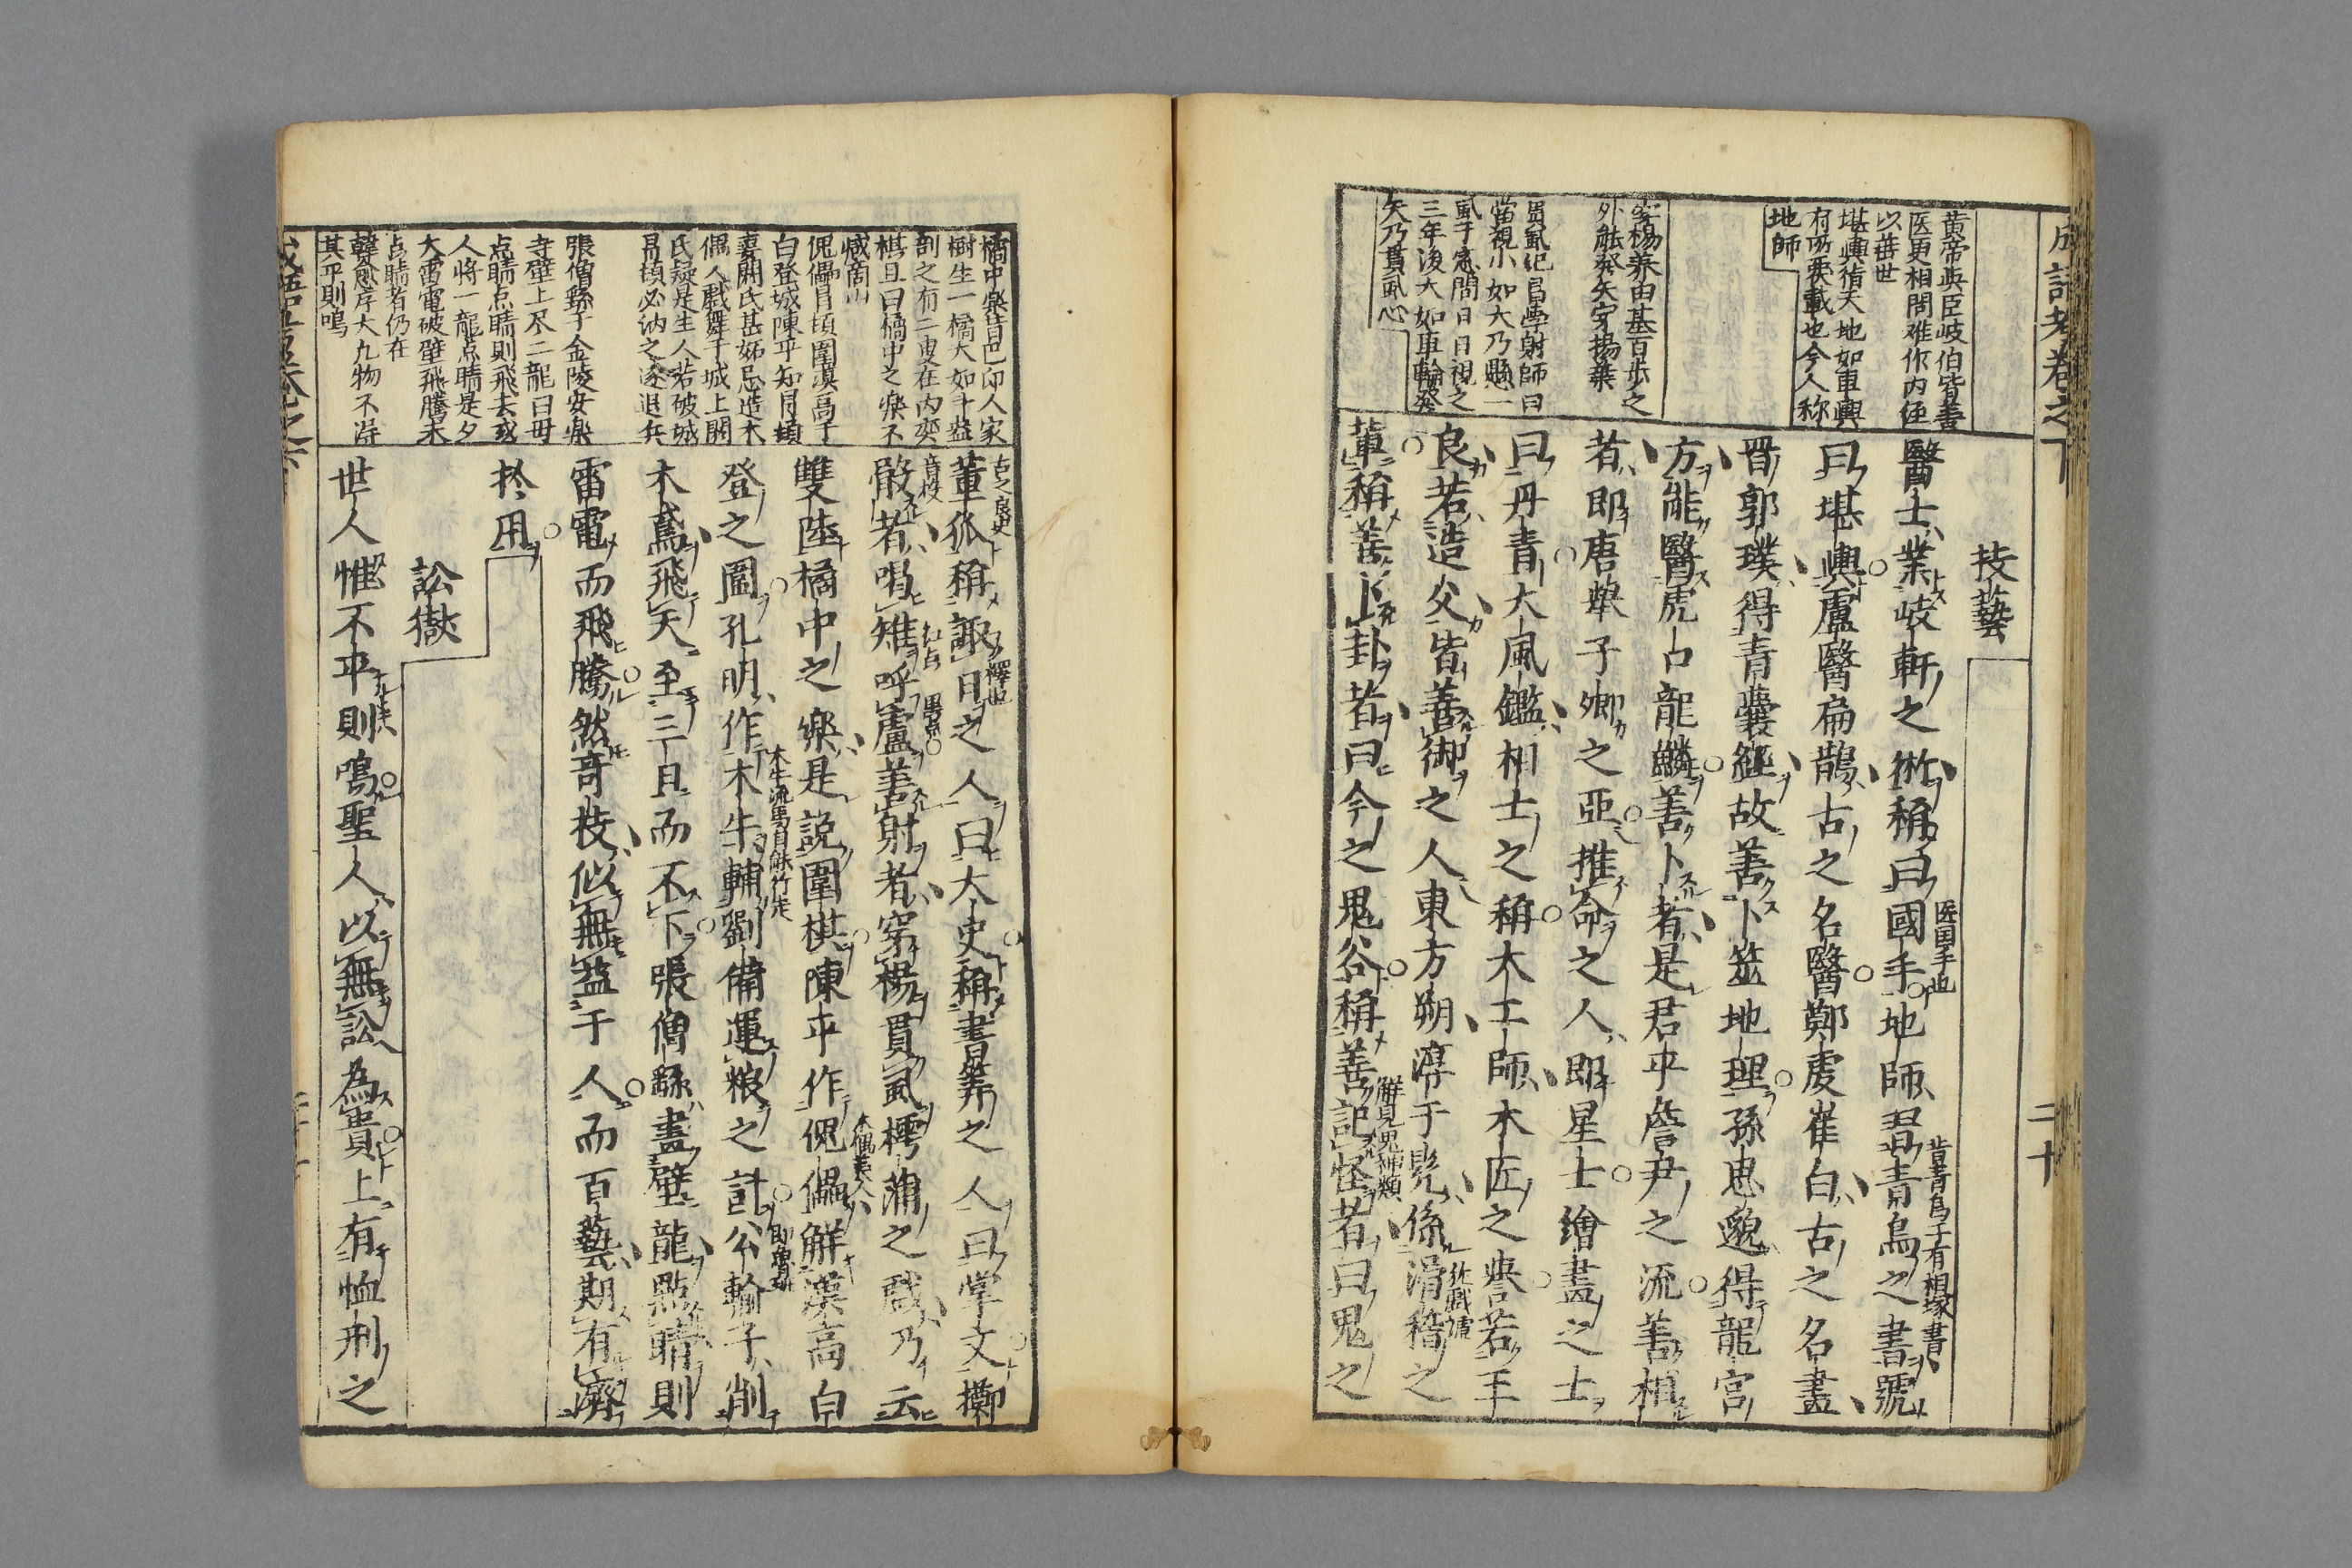 成語考卷之下
二十
黄帝與臣岐伯皆善
医更相問难作内経
以垂世
堪輿指天地如車輿
有所乗載也今人称
地師
穿楊養由基百歩之
外能發矢穿揚葉
貫虱紀昌學射師曰
當視小如大乃懸一
虱于窓間日日視之
三年後大如車輪發
矢乃貫虱心
技藝
醫士業岐軒之術稱曰國手地師習青烏之書號
医国手也
昔青烏子有相塚書
曰堪輿盧醫扁鵲古之名醫鄭虔崔白古之名畫
晋郭璞得青囊經故善卜筮地理孫思邈得龍宮
方能醫虎口龍鱗善卜者是君平詹尹之流善相
者即唐舉子卿之亞推命之人即星士繪畫之士
曰丹青大風鑑相士之稱木工師木匠之譽若王
良若造父皆善御之人東方朔淳于髡係滑稽之
徘戲謔
輩稱善卜卦者曰今之鬼谷稱善記怪者曰鬼之
解見鬼神類
橘中樂昔邑卬人家
樹生一橘大如斗盆
剖之有二叟在内奕
棋且曰橘中之樂不
減商山
傀儡冒頓圍漢高于
白登城陳平知冐頓
妻閼氏甚妬忌造木
偶人戲舞于城上閼
氏疑是生人若破城
冐頓必訥之遂退兵
張僧繇于金陵安樂
寺壁上画二龍曰毋
点睛点睛則飛去或
人將一龍点睛是夕
大雷電破壁飛騰未
点睛者仍在
韓愈序大九物不淂
其平則鳴
古之良史
董狐稱諏曰之人曰太史稱書筭之人曰掌文擲
釋也
骰者喝雉呼盧善射者穿楊貫虱樗蒲之戲乃云
音投
紅点
黒点
雙陸橘中之樂是説圍棋陳平作傀儡解漢高白
木偶美人
登之圍孔明作木牛輔劉備運粮之計公輸子削
木牛流馬自能行走
即魯班
木鳶飛天至三日而不下張僧繇畫壁龍點睛則
雷電而飛騰然奇技似無益于人而百藝期有濟
於用
訟獄
世人惟不平則鳴聖人以無訟為貴上有恤刑之